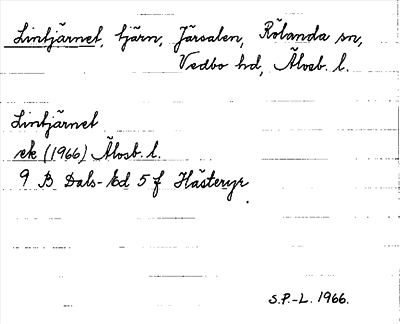 Lintjärnet, tjärn, Järsalen, Rölanda sn,
Vedbo hd, Älvsb. l.
Lintjärnet
ek (1966) Älvsb. l.
9 B Dals-Ed 5 f Hästeryr
S.P.-L. 1966.